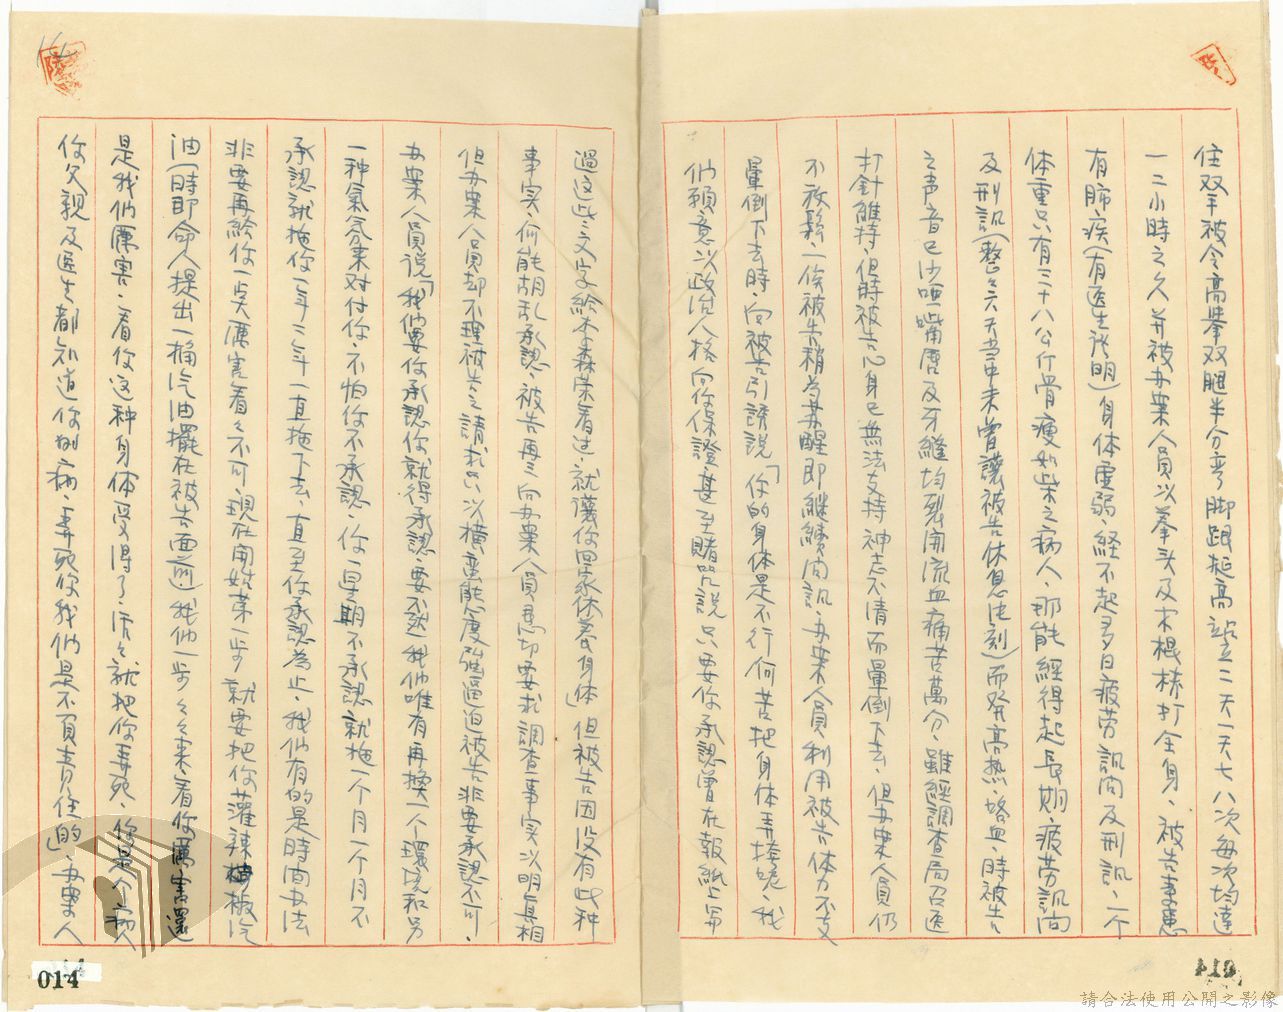 住双手被令高举双腿半分弯脚跟提高站立二天一天七八次每次均達
一二小時之久并被办案人員以拳头及木棍棒打全身、被告素患
有肺疾(有医生証明)身体虚弱、経不起多日疲劳訊問及刑訊、一个
体重只有三十八公斤骨瘦如柴之病人、那能經得起長期、疲劳訊問
及刑訊(整々六天当中未曾讓被告休息片刻)而発高热、咯血、時被告
之声音已沙哑嘴唇及牙縫均裂開流血痛苦萬分、雖經調查局召医
打針維持、但時被告心身已無法支持神志不清而暈倒下去、但办案人員仍
不放鬆、一俟被告稍為苏醒即継續問訊、办案人員利用被告体力不支
暈倒下去時、向被告引誘説「你的身体是不行何苦把身体弄擡垮、我
們願意以政治人格向你保證、甚至賭咒說只要你承認曾在報紙上寫
過这些文字給李森荣看过、就讓你回家休养身体」但被告因没有此种
事实、何能胡乱承認、被告再三向办案人員恳切要求調查事实以明真相
但办案人員却不理被告之請求只以横蛮態度強逼迫被告非要承認不可、
办案人員说「我們要你承認你就得承認、要不然我們唯有再換一个環境和另
一种氣氛来对付你、不怕你不承認、你一星期不承認就拖一个月一个月不
承認就拖你一年二年一直拖下去、直至你承認為止、我們有的是時間办法
非要再給你一点厲害看々不可現在開始第一步就要把你灌辣椒汽
油(時即命人提出一桶汽油擺在被告面前)我們一步々々来、看你厲害還
是我們厲害、看你这种身体受得了、活々就把你弄死、你是个病人
你父親及医生都知道你有病、弄死你我們是不負責任的」、办案人
014
請合法使用公開之影像